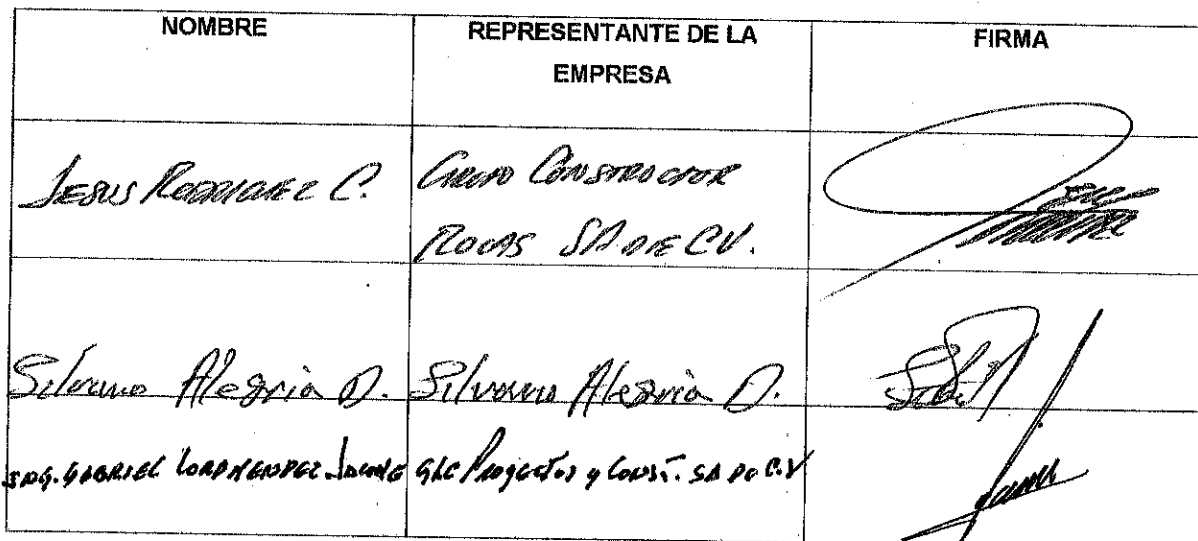 NOMBRE
REPRESENTANTE DE LA
EMPRESA
FIRMA
JESUS RODRIGUEZ C.
GRUPO CONSTRUCTOR
ROCAS SA DE C.V.
Silvano Alegria D.
Silvano Alegria D.
ING. GABRIEL
GLC Proyectos y Const. SA DE C.V